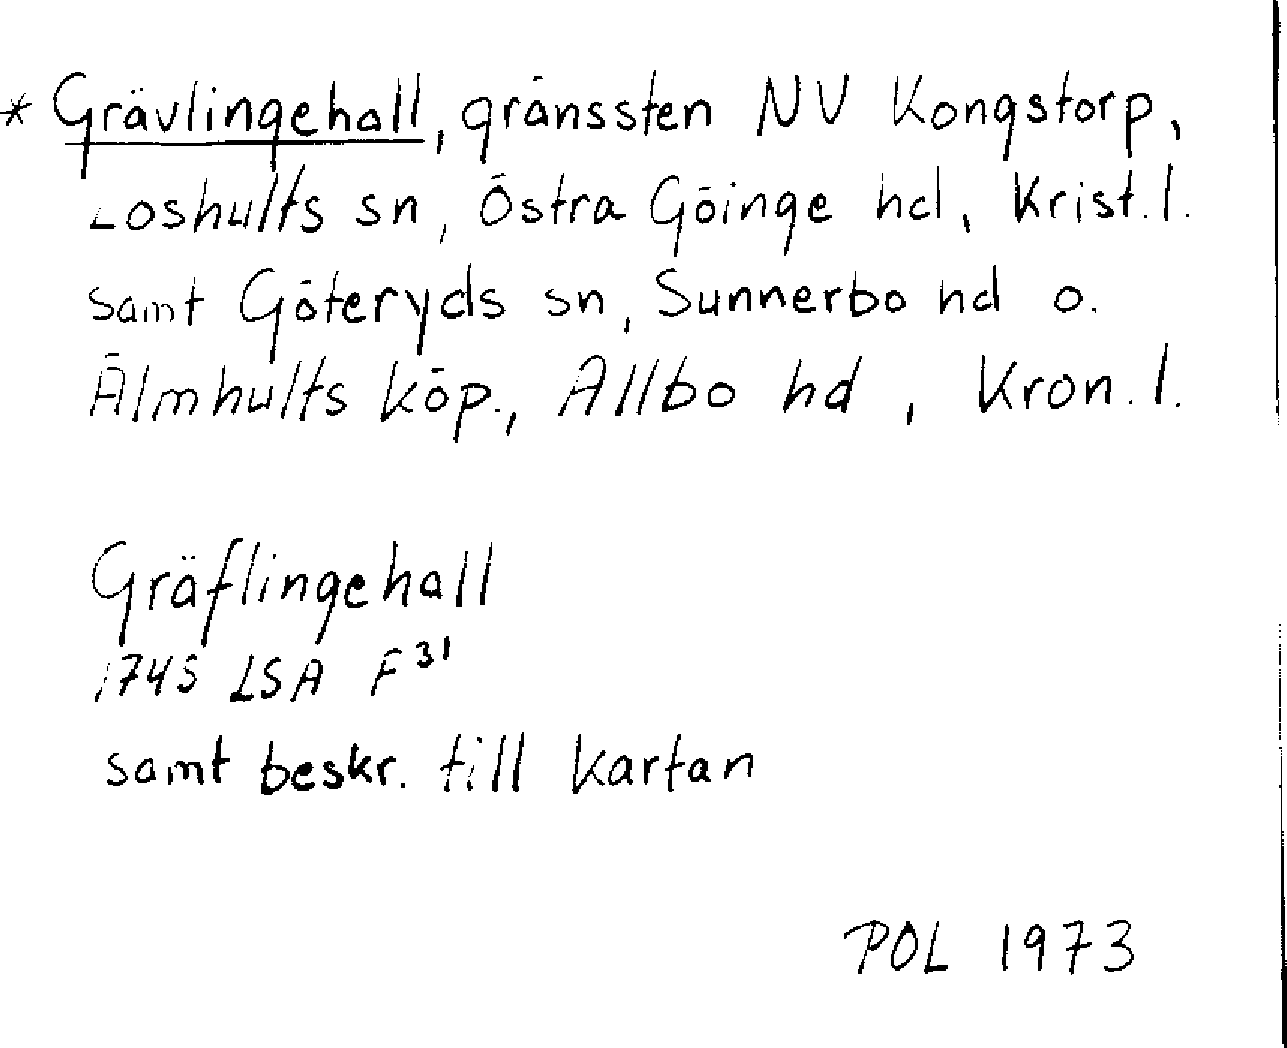 * Grävlingehall, gränssten NV Kongstorp,
Loshults sn, Östra Göinge hd, Krist. l.
samt Göteryds sn, Sunnerbo hd o.
Älmhults köp., Allbo hd, Kron. l.
Gräflingehall
1745 LSA F³¹
samt beskr. till kartan
POL 1973